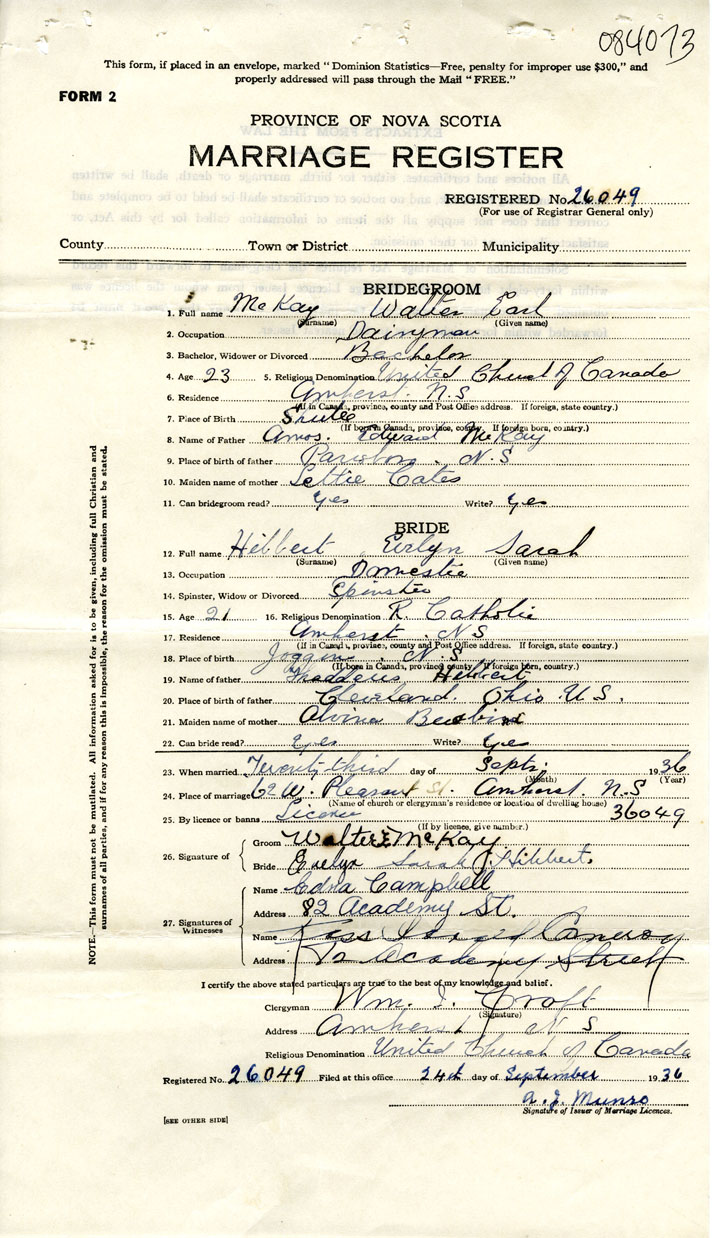 084073
This form, if placed in an envelope, marked "Dominion Statistics—Free, penalty for improper use $300," and
properly addressed will pass through the Mail "FREE."
FORM 2
PROVINCE OF NOVA SCOTIA
MARRIAGE REGISTER
REGISTERED No. 26049
(For use of Registrar General only)
County Town or District Municipality
BRIDEGROOM
1. Full name McKay Walter Earl
(Surname) (Given name)
2. Occupation Dairyman
3. Bachelor, Widower or Divorced Bachelor
4. Age 23 5. Religious Denomination United Church of Canada
6. Residence Amherst N.S
(If in Canada, province, county and Post Office address. If foreign, state country.)
7. Place of Birth Shulee
(If born in Canada, province, county. If foreign born, country.)
8. Name of Father Amos. Edward McKay
9. Place of birth of father Parrsboro. N.S
10. Maiden name of mother Lettie Cates
11. Can bridegroom read? Yes Write? Yes
BRIDE
12. Full name Hibbert Evelyn Sarah
(Surname) (Given name)
13. Occupation Domestic
14. Spinster, Widow or Divorced Spinster
15. Age 21 16. Religious Denomination R. Catholic
17. Residence Amherst. N.S
(If in Canada, province, county and Post Office address. If foreign, state country.)
18. Place of birth Joggins. N.S
(If born in Canada, province, county. If foreign born, country.)
19. Name of father Thaddeus Hibbert
20. Place of birth of father Cleveland. Ohio U.S.
21. Maiden name of mother Alvina
22. Can bride read? Yes Write? Yes
23. When married Twenty third day of Sept. 1936
(Month) (Year)
24. Place of marriage 62 W. Pleasant St. Amherst N.S
(Name of church or clergyman's residence or location of dwelling house)
25. By licence or banns License 36049
(If by licence, give number.)
26. Signature of
Groom Walter E McKay
Bride Evelyn Sarah J. Hibbert.
27. Signatures of Witnesses
Name Edna Campbell
Address 82 Academy St.
Name Cameron
Address Academy Street
I certify the above stated particulars are true to the best of my knowledge and belief.
Clergyman Wm. I. Croft
(Signature)
Address Amherst N S
Religious Denomination United Church of Canada
Registered No. 26049 Filed at this office 24th day of September 1936
A. J. Munro
Signature of Issuer of Marriage Licences.
[SEE OTHER SIDE]
NOTE.—This form must not be mutilated. All information asked for is to be given, including full Christian and
surnames of all parties, and if for any reason this is impossible, the reason for the omission must be stated.